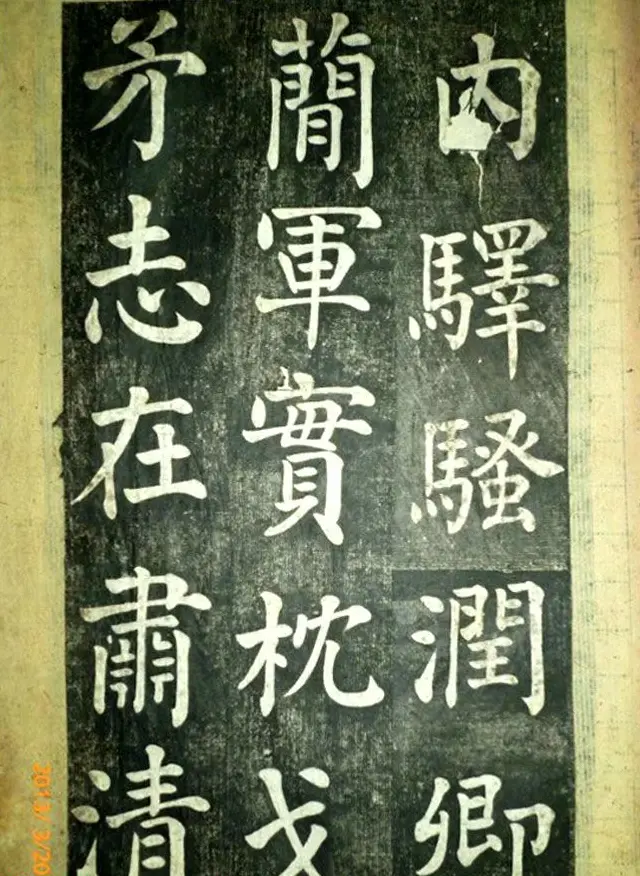 内驛騷潤卿
蕳軍實枕戈
矛志在肅清
2013/3/20